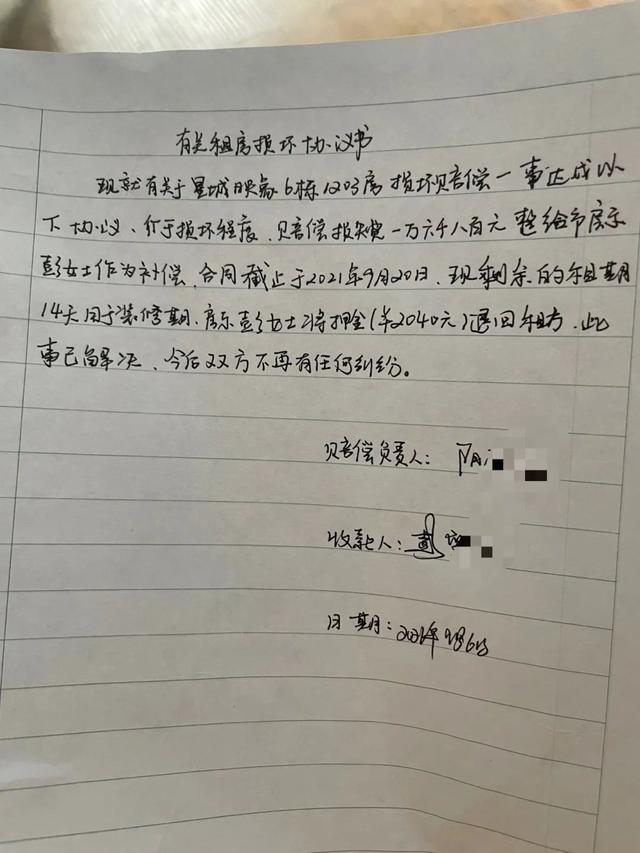 有关租房损坏协议书
现就有关于星城映象6栋1203房损坏赔偿一事达成以
下协议、介于损坏程度、赔偿损失费一万六千八百元整给予房东
彭女士作为补偿、合同截止于2021年9月20日、现剩余的租期
14天用于装修期、房东彭女士将押金(共2040元)退回租方、此
事已解决、今后双方不再有任何纠纷。
赔偿负责人:
收款人:
日期:2021年9月6日